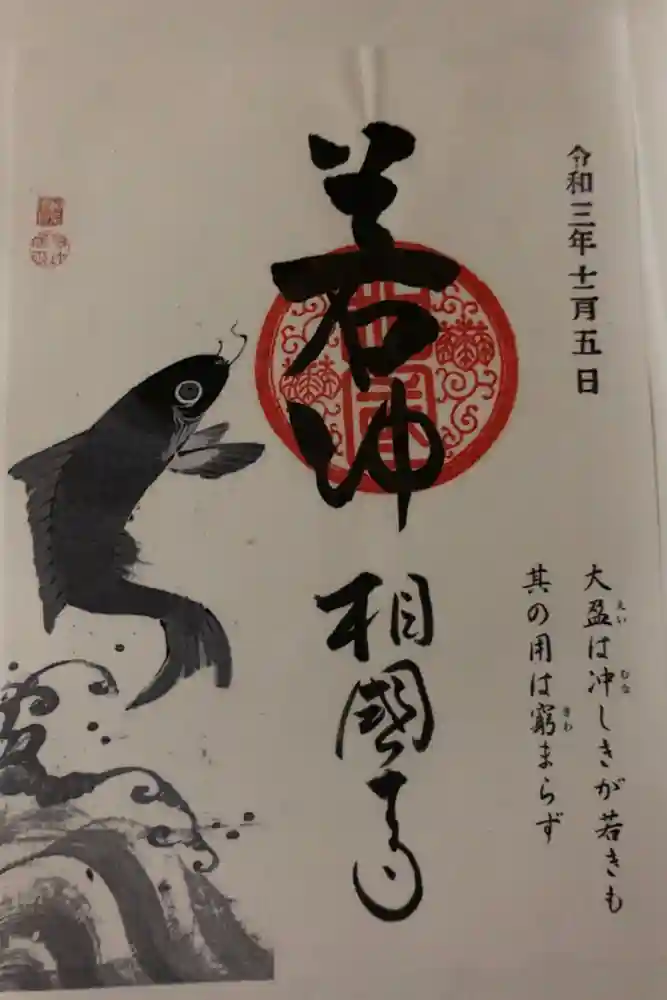 令和三年十二月五日
大盈は冲しきが若きも
其の用は窮まらず
若冲
相國寺